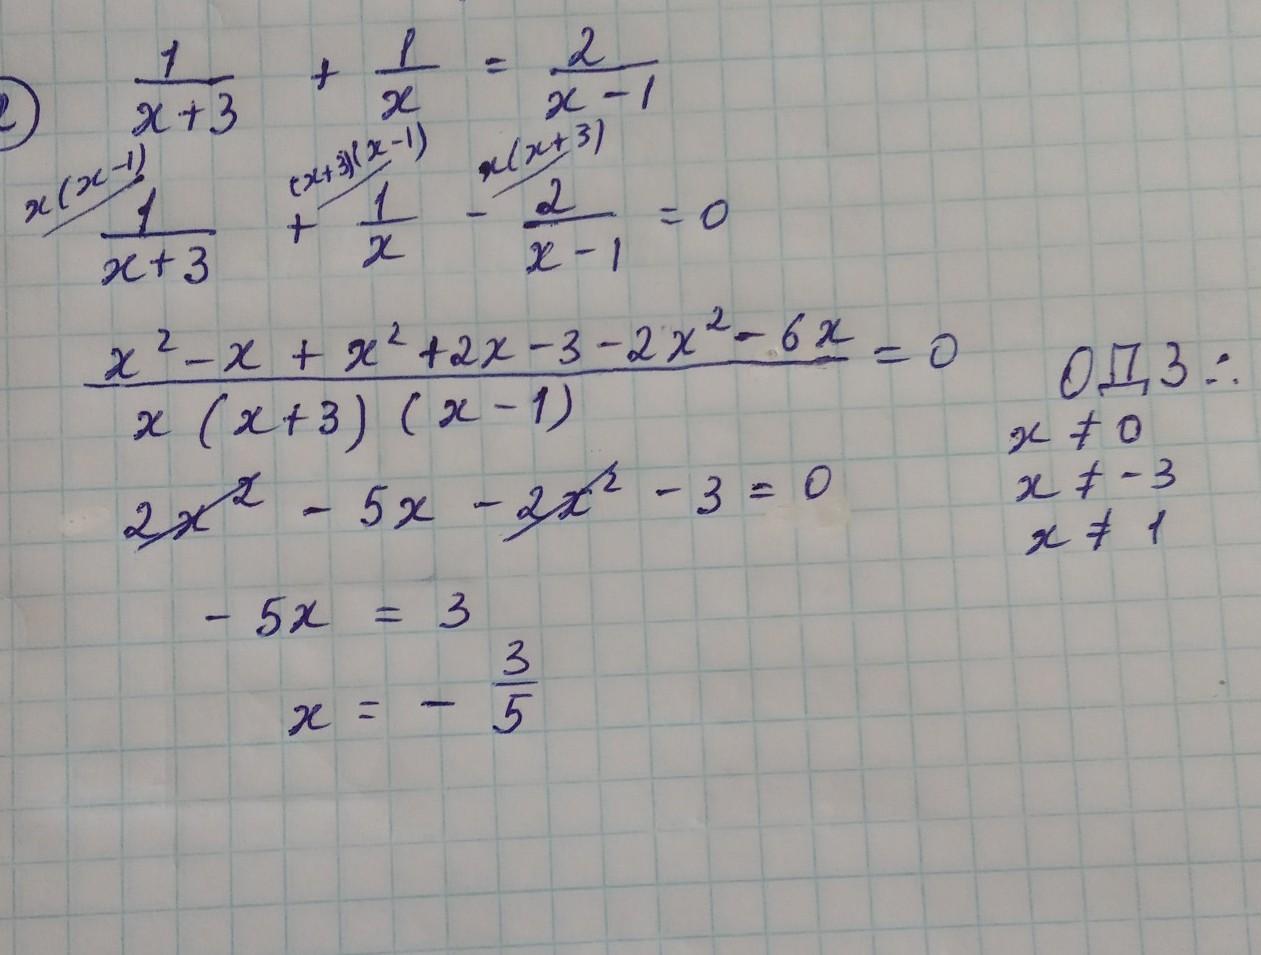 2) 1/(x+3) + 1/x = 2/(x-1)
x(x-1) (x+3)(x-1) x(x+3)
1/(x+3) + 1/x - 2/(x-1) = 0
(x² - x + x² + 2x - 3 - 2x² - 6x)/(x(x+3)(x-1)) = 0
ОДЗ:
x ≠ 0
x ≠ -3
x ≠ 1
2x² - 5x - 2x² - 3 = 0
-5x = 3
x = - 3/5